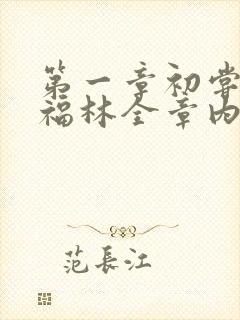 第一章初尝
福林全章内
范長江